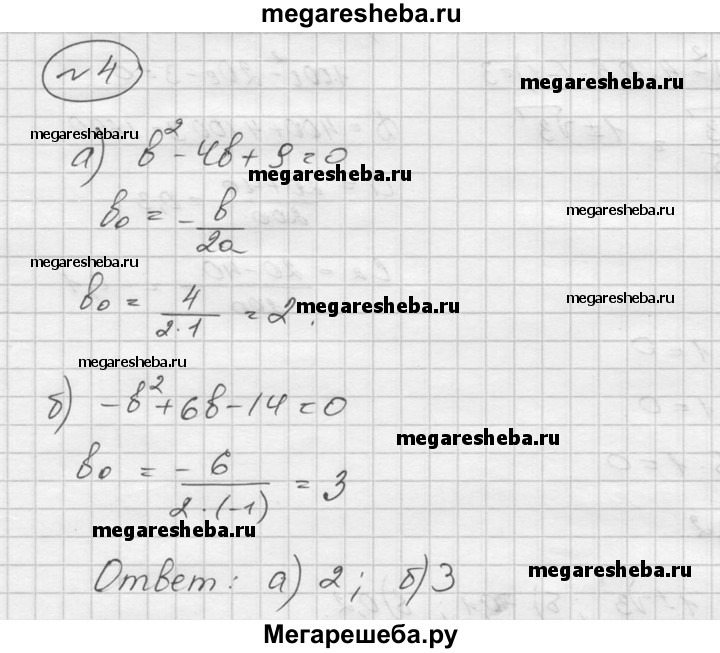 megaresheba.ru
№4
megaresheba.ru
megaresheba.ru
а) в² - 4в + 9 = 0
megaresheba.ru
в₀ = - в/2а
megaresheba.ru
megaresheba.ru
в₀ = 4/(2·1) = 2.
megaresheba.ru
megaresheba.ru
megaresheba.ru
б) -в² + 6в - 14 = 0
megaresheba.ru
в₀ = -6/(2·(-1)) = 3
megaresheba.ru
Ответ: а) 2; б) 3
megaresheba.ru
Мегарешеба.ру